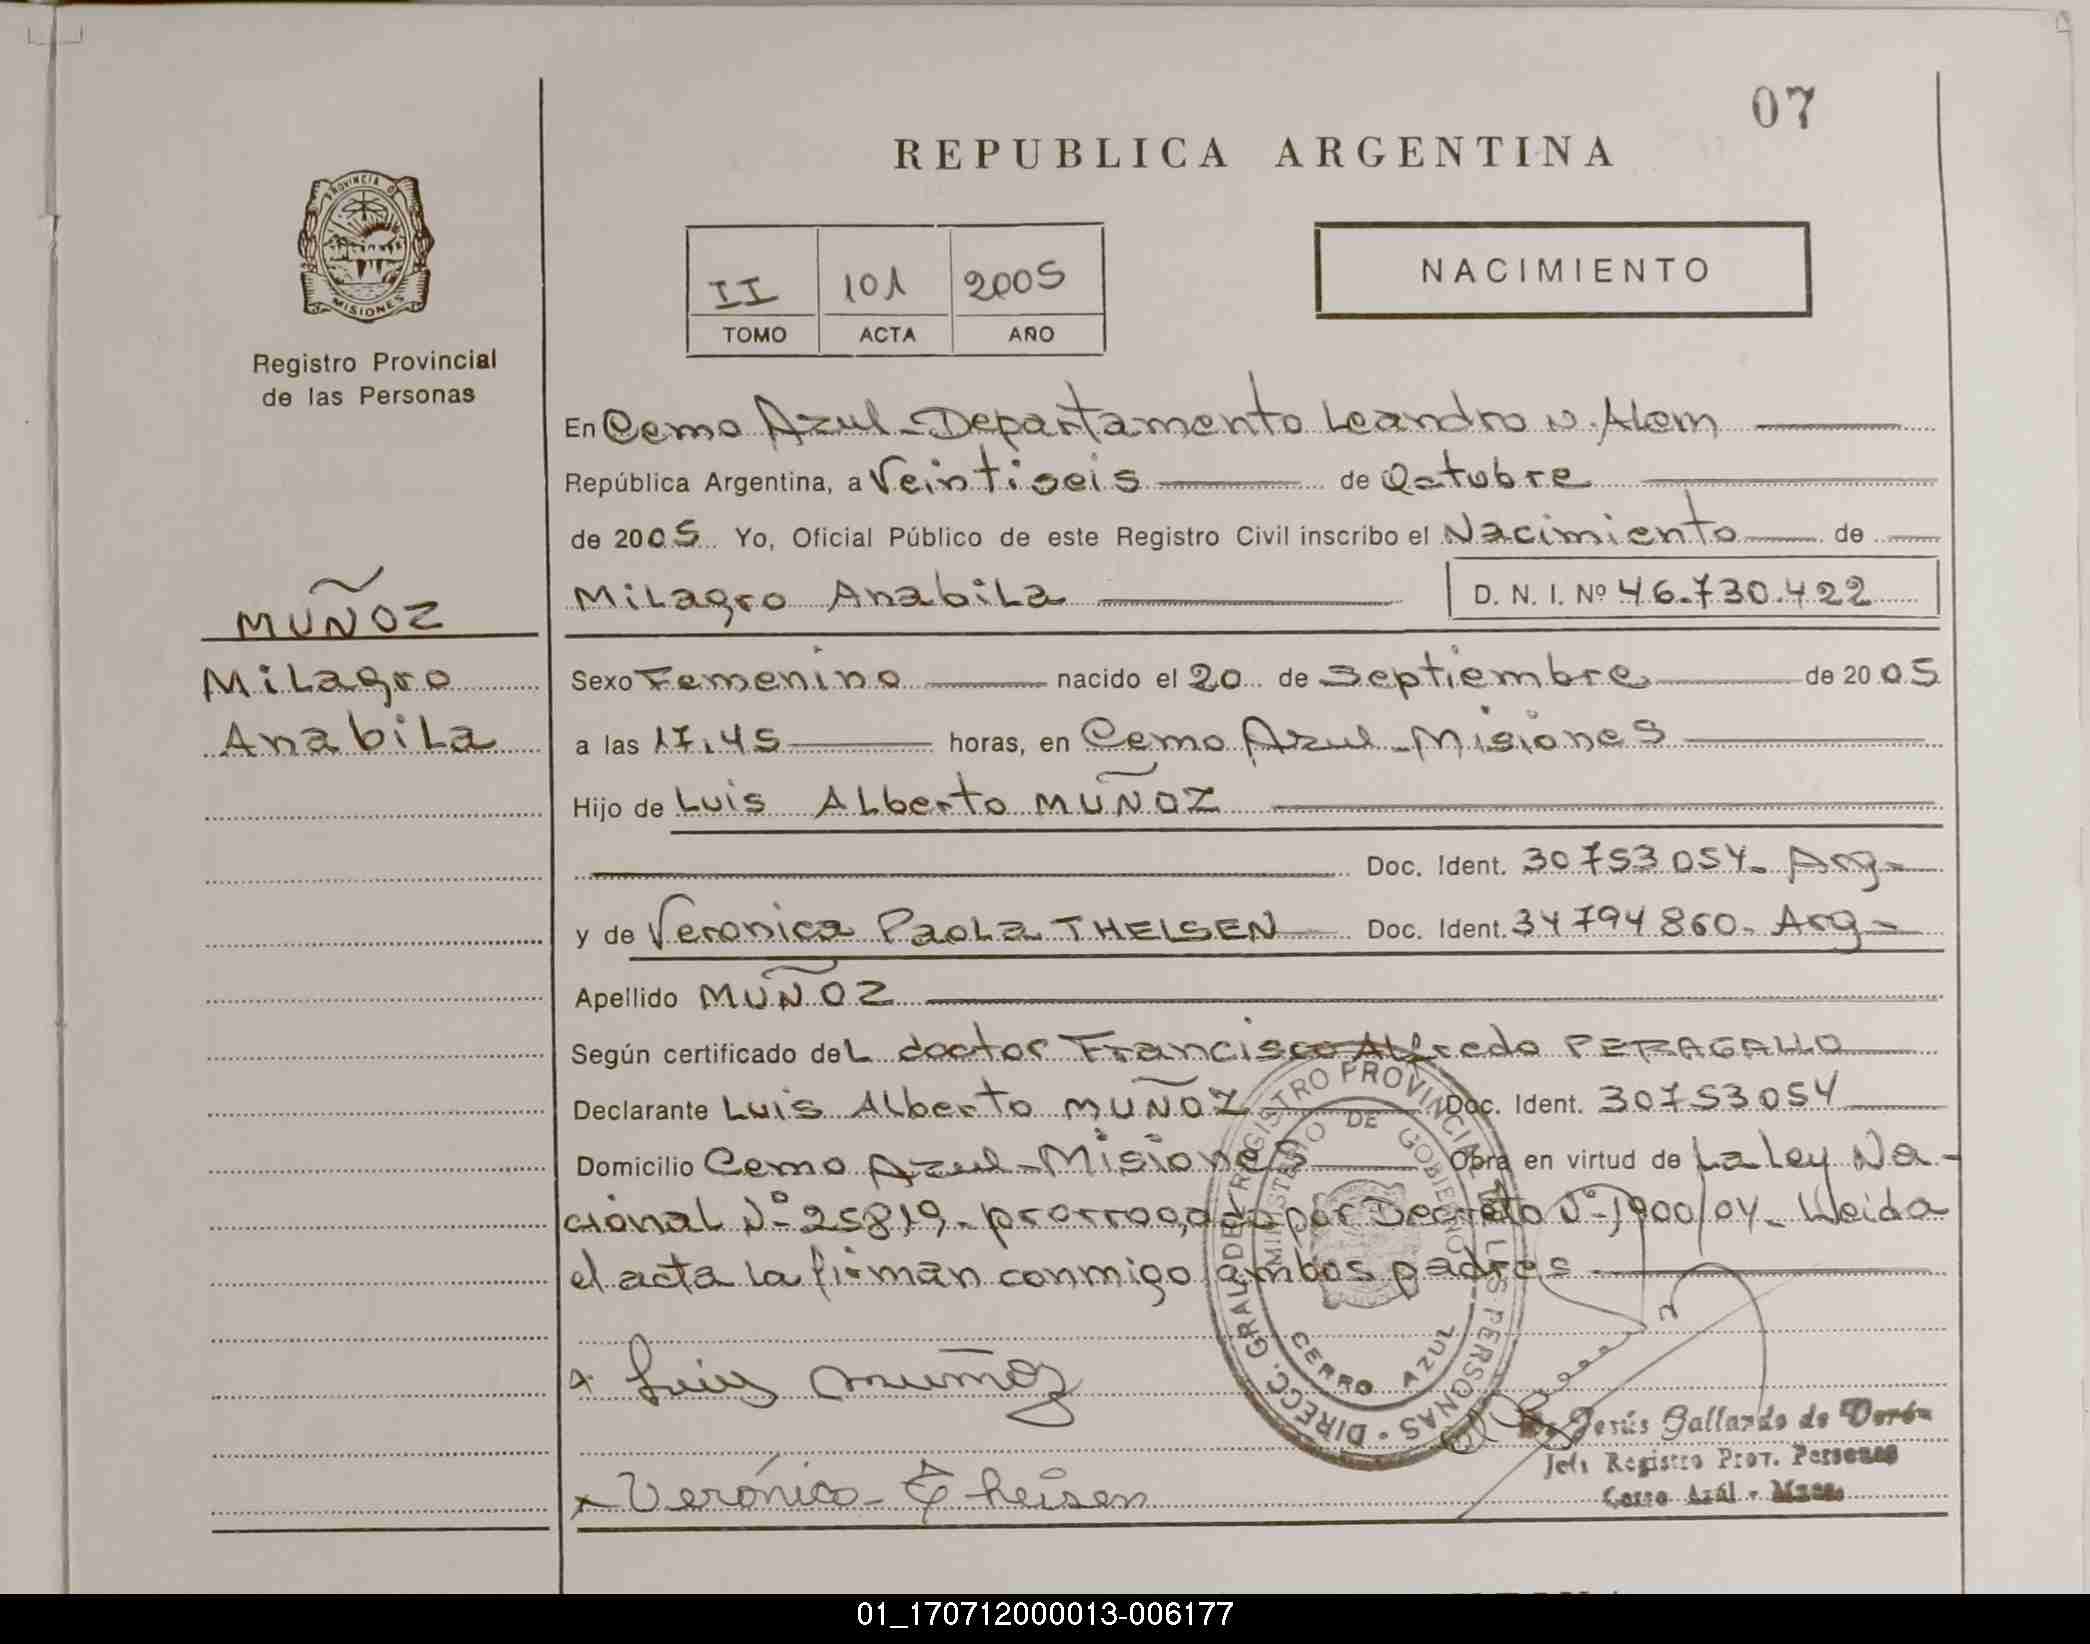 07
REPUBLICA ARGENTINA
PROVINCIA DE
MISIONES
Registro Provincial
de las Personas
II 101 2005
TOMO ACTA AÑO
NACIMIENTO
En Cerro Azul - Departamento Leandro N. Alem
República Argentina, a Veintiseis de Octubre
de 2005 Yo, Oficial Público de este Registro Civil inscribo el Nacimiento de
Milagro Anabila D. N. I. Nº 46.730.422
MUÑOZ
Milagro
Anabila
Sexo Femenino nacido el 20 de Septiembre de 2005
a las 17.45 horas, en Cerro Azul - Misiones
Hijo de Luis Alberto MUÑOZ
Doc. Ident. 30753054 - Arg -
y de Veronica Paola THEISEN Doc. Ident. 34794860 - Arg -
Apellido MUÑOZ
Según certificado del doctor Francisco Alfredo PERAGALLO
Declarante Luis Alberto MUÑOZ Doc. Ident. 30753054
Domicilio Cerro Azul - Misiones Obra en virtud de La Ley Na-
cional Nº 25819 - prorrogado por Decreto Nº 1900/04 - Leida
el acta la firman conmigo ambos padres
x Luis muñoz
x Verónica - Theisen
DIRECC. GRAL DE REGISTRO PROVINCIAL DE LAS PERSONAS
MINISTERIO DE GOBIERNO
CERRO AZUL
Jesús Gallardo de
Jefe Registro Prov. Personas
Cerro Azúl - Mnes.
01_170712000013-006177